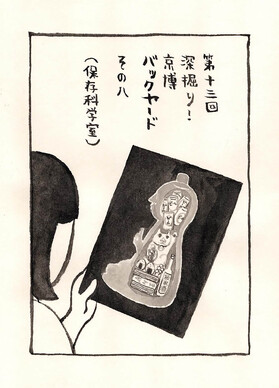 第十三回
深掘り！
京博
バックヤード
その八
（保存科学室）